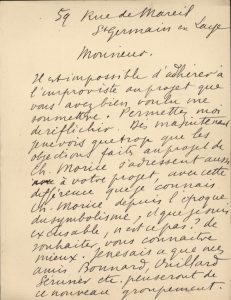 59 Rue de Mareil
St Germain en Laye
Monsieur.
Il est impossible d'adhérer à
l'improviste au projet que
vous avez bien voulu me
soumettre. Permettez moi
de réfléchir. Dès maintenant
je ne vois que trop que les
objections faits au projet de
Ch. Morice s'adressent aussi
à votre projet, avec cette
différence que je connais
Ch. Morice depuis l'époque
du symbolisme, et que je suis
excusable, n'est ce pas? de
souhaiter, vous connaitre
mieux. Je ne sais ce que mes
amis Bonnard, Vuillard
etc. penseront de
ce nouveau groupement.